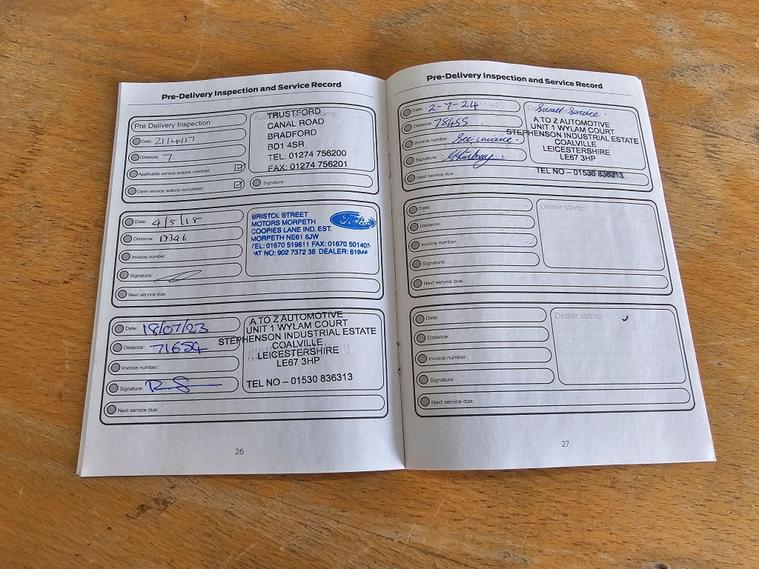 Pre-Delivery Inspection and Service Record
Pre Delivery Inspection
Date: 21/4/17
Distance: 7
Applicable service actions checked
Open service actions completed
TRUSTFORD
CANAL ROAD
BRADFORD
BD1 4SR
TEL: 01274 756200
FAX: 01274 756201
Signature:
Date: 4/5/18
Distance:
Invoice number:
Signature:
Next service due:
BRISTOL STREET
MOTORS MORPETH
COOPIES LANE IND. EST.
MORPETH NE61 6JW
TEL: 01670 519611 FAX: 01670 501405
VAT NO: 902 7372 38 DEALER:
Ford
Date: 18/07/23
Distance: 71654
Invoice number:
Signature:
Next service due:
A TO Z AUTOMOTIVE
UNIT 1 WYLAM COURT
STEPHENSON INDUSTRIAL ESTATE
COALVILLE
LEICESTERSHIRE
LE67 3HP
TEL NO – 01530 836313
26
Pre-Delivery Inspection and Service Record
Date: 2-7-24
Distance: 78455
Invoice number: See invoice.
Signature:
Next service due:
Small Service.
A TO Z AUTOMOTIVE
UNIT 1 WYLAM COURT
STEPHENSON INDUSTRIAL ESTATE
COALVILLE
LEICESTERSHIRE
LE67 3HP
TEL NO – 01530 836313
Date:
Distance:
Invoice number:
Signature:
Next service due:
Dealer stamp
Date:
Distance:
Invoice number:
Signature:
Next service due:
Dealer stamp
27